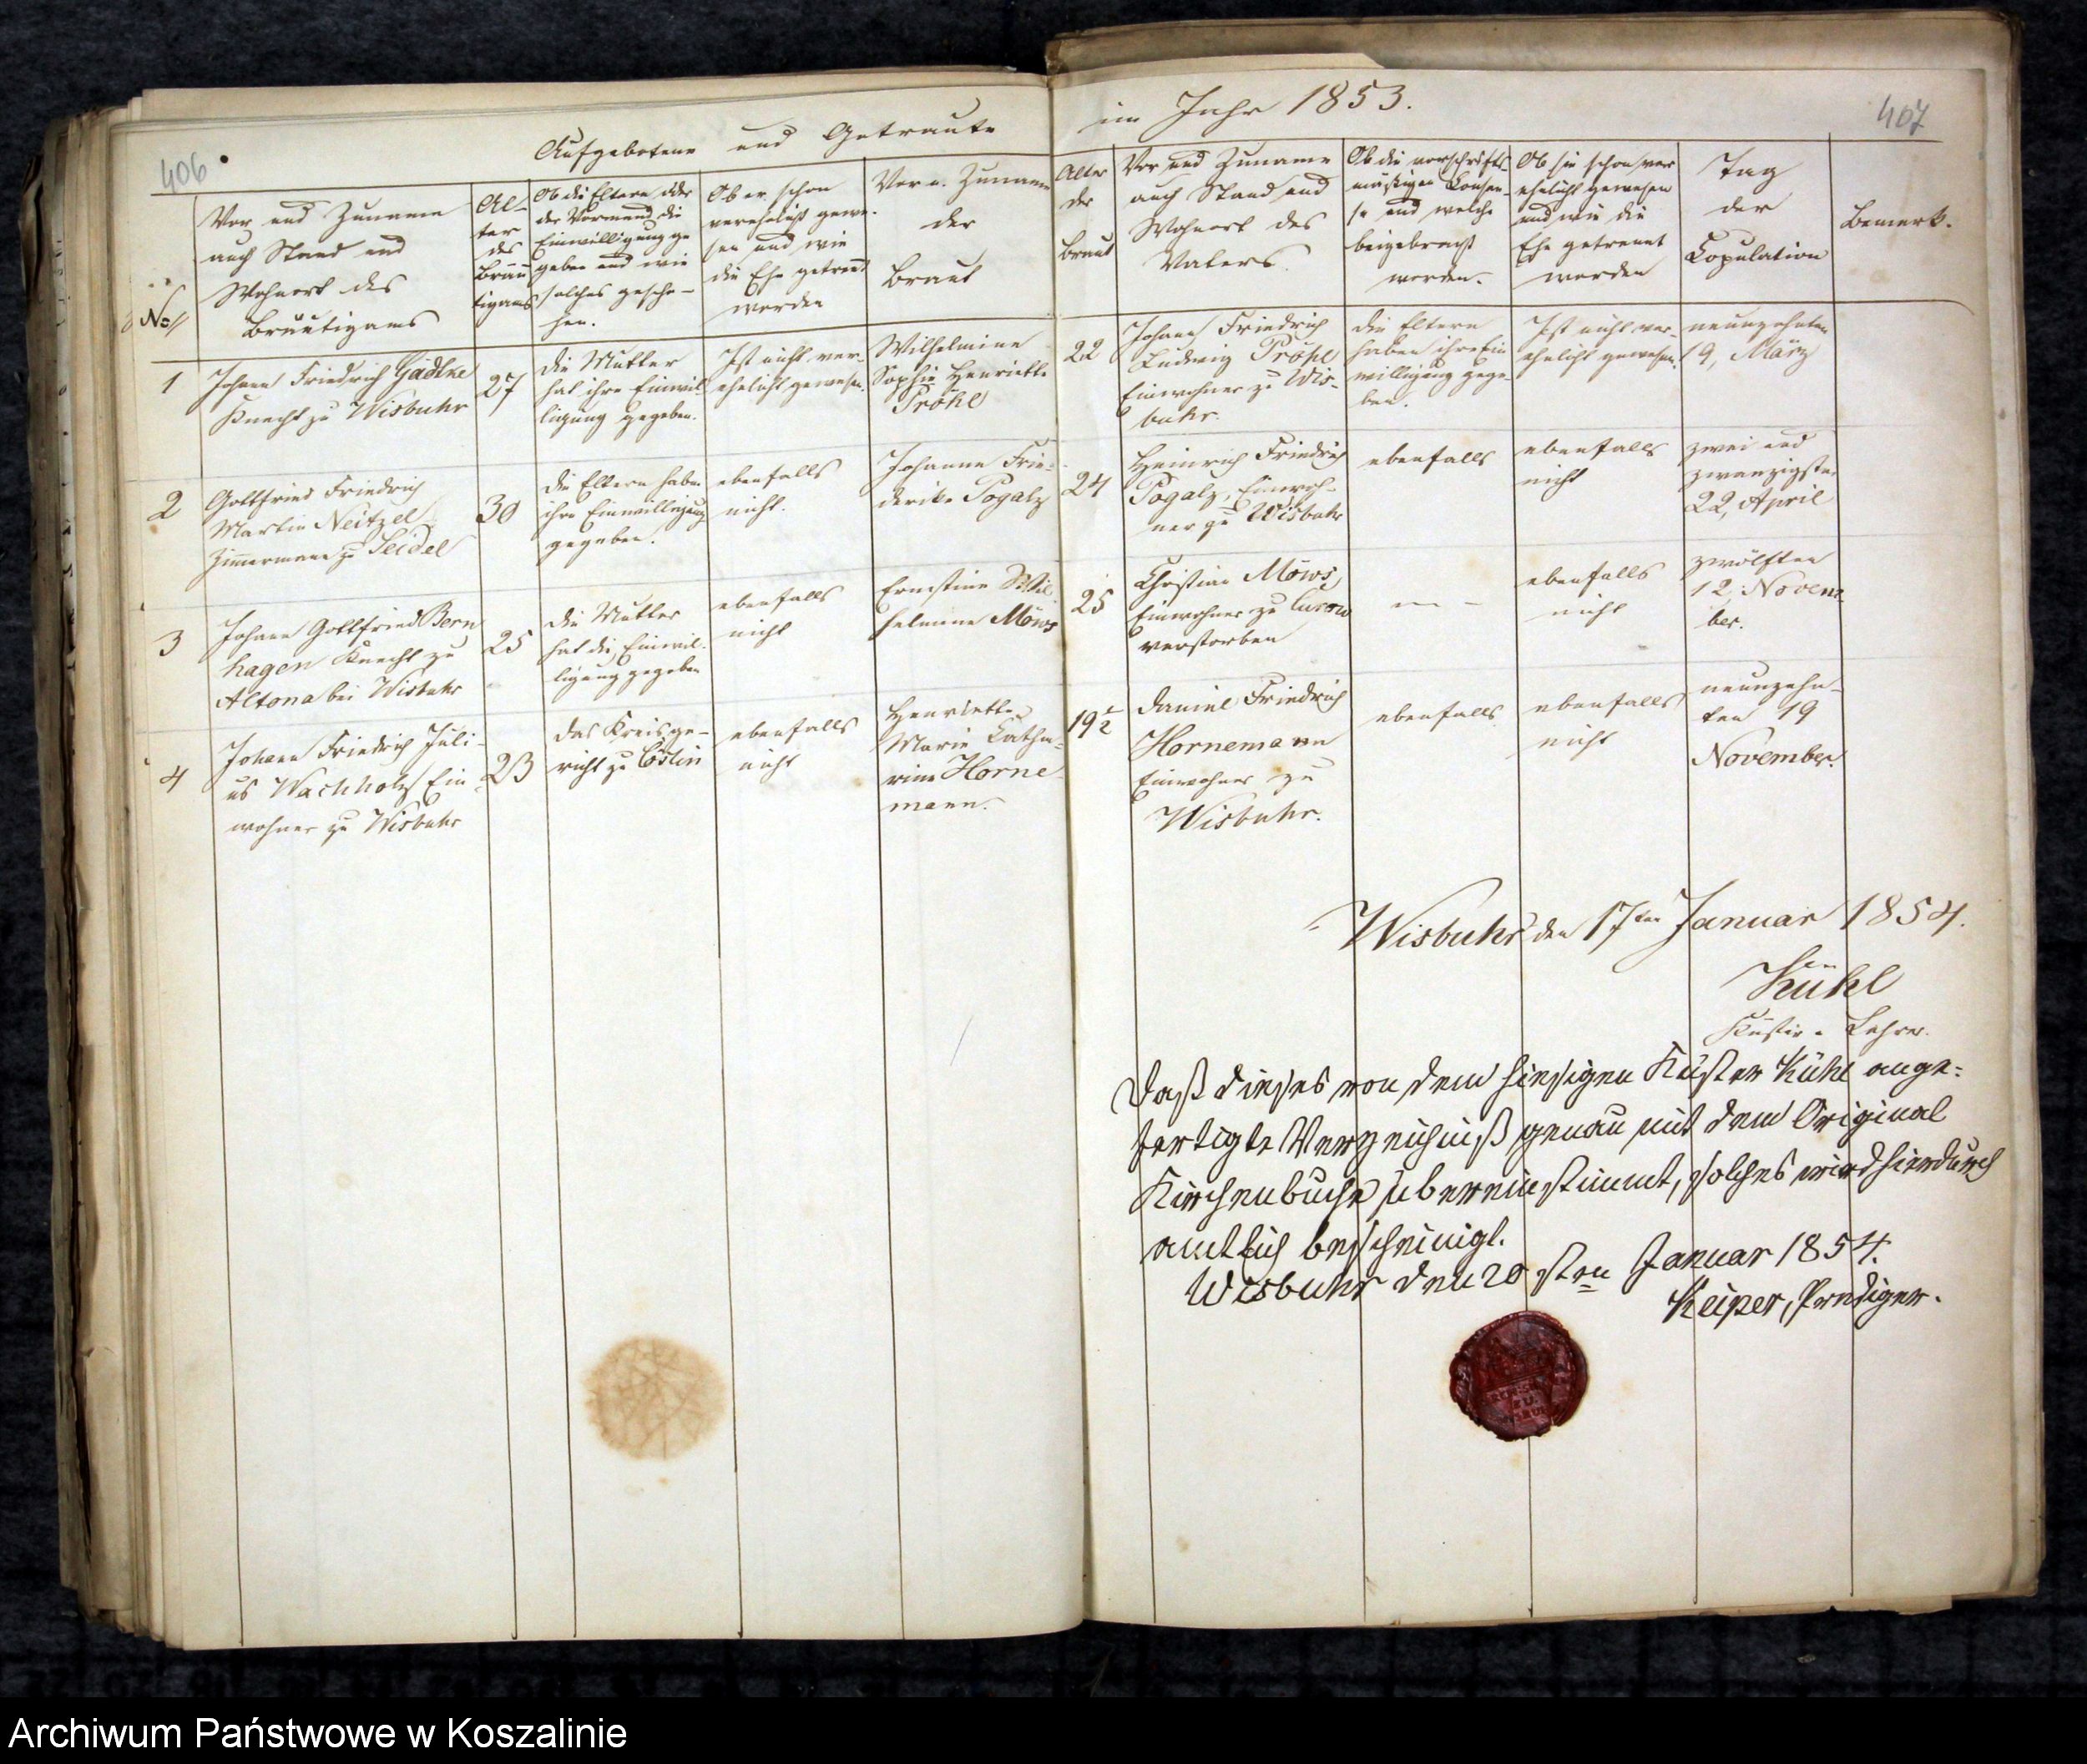 406
Aufgebotene und Getraute
im Jahr 1853.
407
No
Vor und Zuname
auch Stand und
Wohnort des
Bräutigams
Al-
ter
des
Bräu
tigams
Ob die Eltern oder
der Vormund die
Einwilligung ge
geben und wie
solches gesche-
hen.
Ob er schon
verehelicht gewe-
sen und wie
die Ehe getrennt
worden
Vor u. Zuname
der
Braut
Alter
der
Braut
Vor und Zuname
auch Stand und
Wohnort des
Vaters.
Ob die vorschrifts-
mäßigen Consen-
se und welche
beigebracht
worden.
Ob sie schon ver
ehelicht gewesen
und wie die
Ehe getrennt
worden
Tag
der
Copulation
Bemerk.
1
Johann Friedrich Gädtke
Knecht zu Wisbuhr
27
die Mutter
hat ihre Einwil-
ligung gegeben.
Ist nicht ver-
ehelicht gewesen.
Wilhelmine
Sophie Henriette
Pröhl
22
Johann Friedrich
Ludwig Pröhl
Einwohner zu Wis-
buhr.
die Eltern
haben ihre Ein
willigung gege-
ben.
Ist nicht ver-
ehelicht gewesen.
neunzehnten
19, März
2
Gottfried Friedrich
Martin Neitzel
Zimmermann zu Seidel
30
die Eltern haben
ihre Einwilligung
gegeben.
ebenfalls
nicht.
Johanne Frie-
derike Pogalz
24
Heinrich Friedrich
Pogalz, Einwoh-
ner zu Wisbuhr
ebenfalls
ebenfalls
nicht
zwei und
zwanzigsten
22, April
3
Johann Gottfried Bern
hagen Knecht zu
Altona bei Wisbuhr
25
die Mutter
hat die Einwil-
ligung gegeben
ebenfalls
nicht
Ernestine Wil
helmine Möws
25
Christian Möws,
Einwohner zu Curow
verstorben
— -
ebenfalls
nicht
zwölften
12, Novem-
ber.
4
Johann Friedrich Juli-
us Wachholz Ein-
wohner zu Wisbuhr
23
das Kreisge-
richt zu Cöslin
ebenfalls
nicht
Henriette
Marie Catha-
rine Horne-
mann.
19½
Daniel Friedrich
Hornemann
Einwohner zu
Wisbuhr.
ebenfalls
ebenfalls
nicht
neunzehn-
ten 19
November.
Wisbuhr den 17ten Januar 1854.
Kühl
Küster u Lehrer.
Daß dieses von dem hiesigen Küster Kühl ange=
fertigte Verzeichniß genau mit dem Original
Kirchenbuche übereinstimmt, solches wird hierdurch
amtlich bescheinigt.
Wisbuhr den 20sten Januar 1854.
Keiper, Prediger.
Archiwum Państwowe w Koszalinie